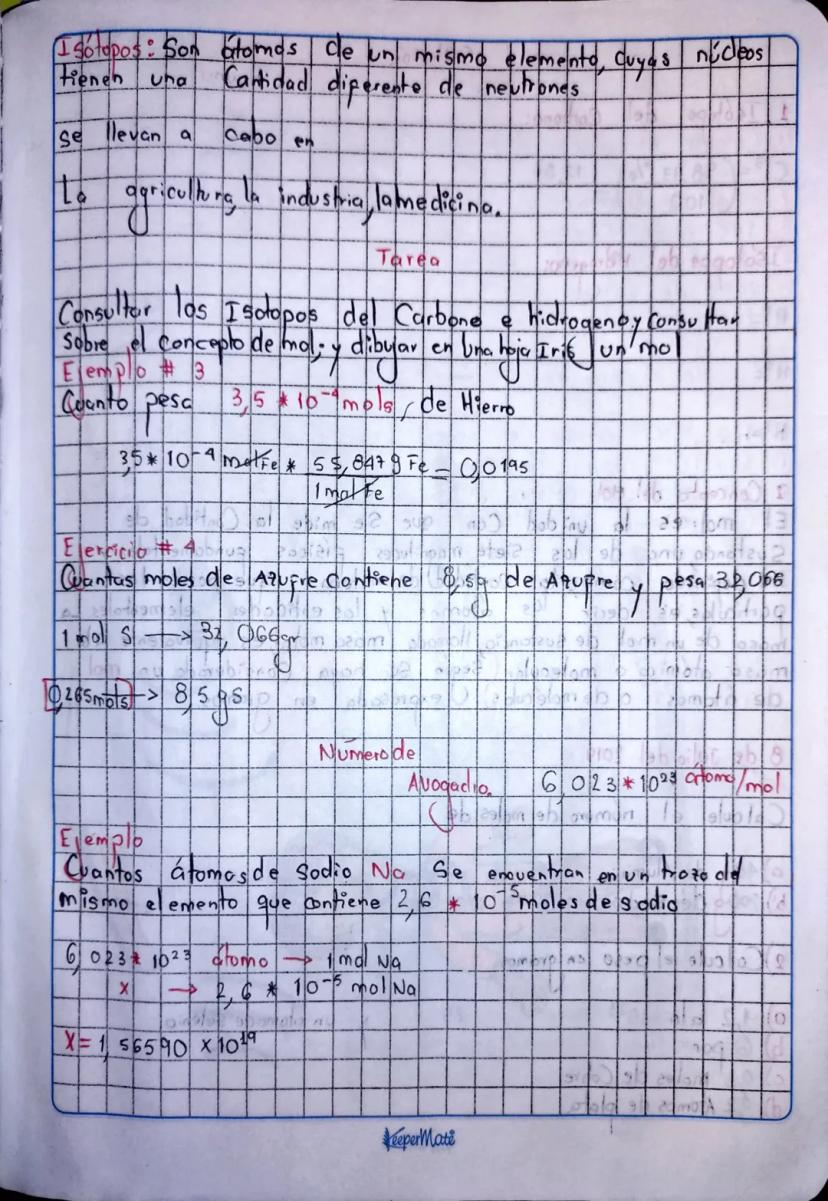 Isótopos: Son átomos de un mismo elemento, cuyas núcleos
tienen una Cantidad diferente de neutrones
se llevan a cabo en
La agricultura, la industria, la medicina.
Tarea
Consultar los Isotopos del Carbono e hidrogeno y Consultar
sobre el concepto de mol; y dibujar en una hoja Iris un mol
Ejemplo # 3
Cuanto pesa 3,5 * 10⁻⁴ mols, de Hierro
3,5 * 10⁻⁴ mol Fe * 55,847 g Fe = 0,0195
1 mol Fe
Ejercicio # 4
Cuantas moles de Azufre Contiene 8,5g de Azufre y pesa 32,066
1 mol S → 32,066gr
0,265 mols → 8,5 gs
Número de
Avogadro. 6,023 * 10²³ átomo/mol
Ejemplo
Cuantos átomos de Sodio Na Se encuentran en un trozo del
mismo elemento que contiene 2,6 * 10⁻⁵ moles de sodio
6,023 * 10²³ átomo → 1 mol Na
x → 2,6 * 10⁻⁵ mol Na
X = 1,56590 x 10¹⁹
KeeperMate